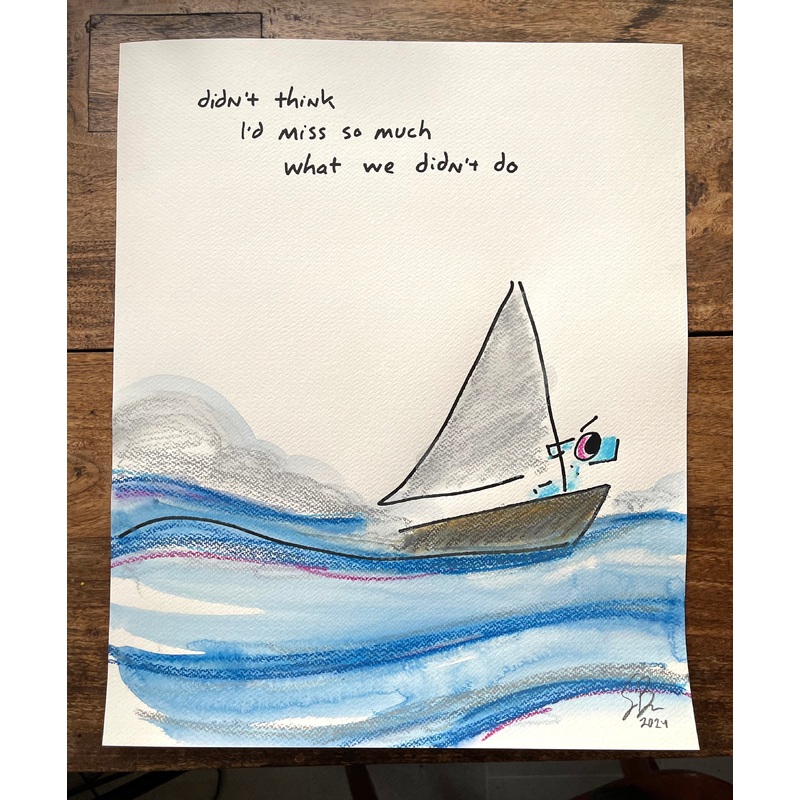 didn't think
I'd miss so much
what we didn't do
2024